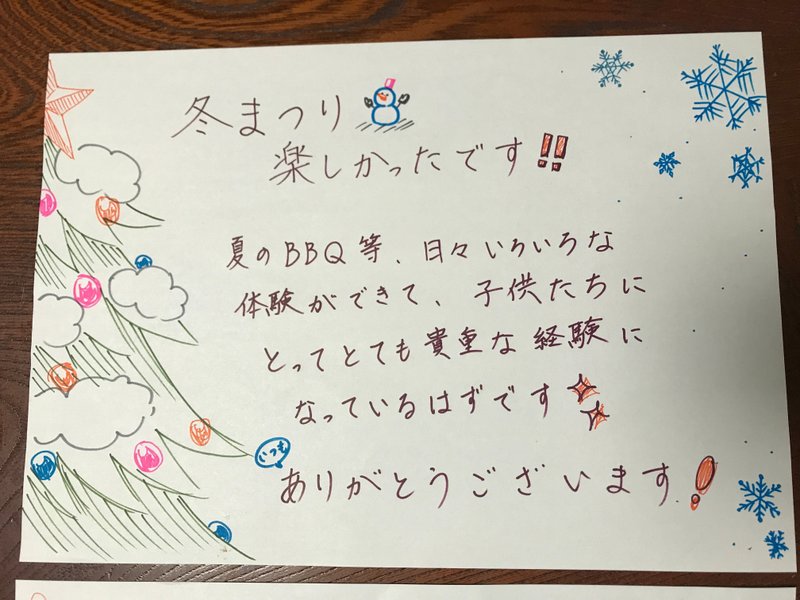 冬まつり
楽しかったです!!
夏のBBQ等、日々いろいろな
体験ができて、子供たちに
とってとても貴重な経験に
なっているはずです
いつも
ありがとうございます!